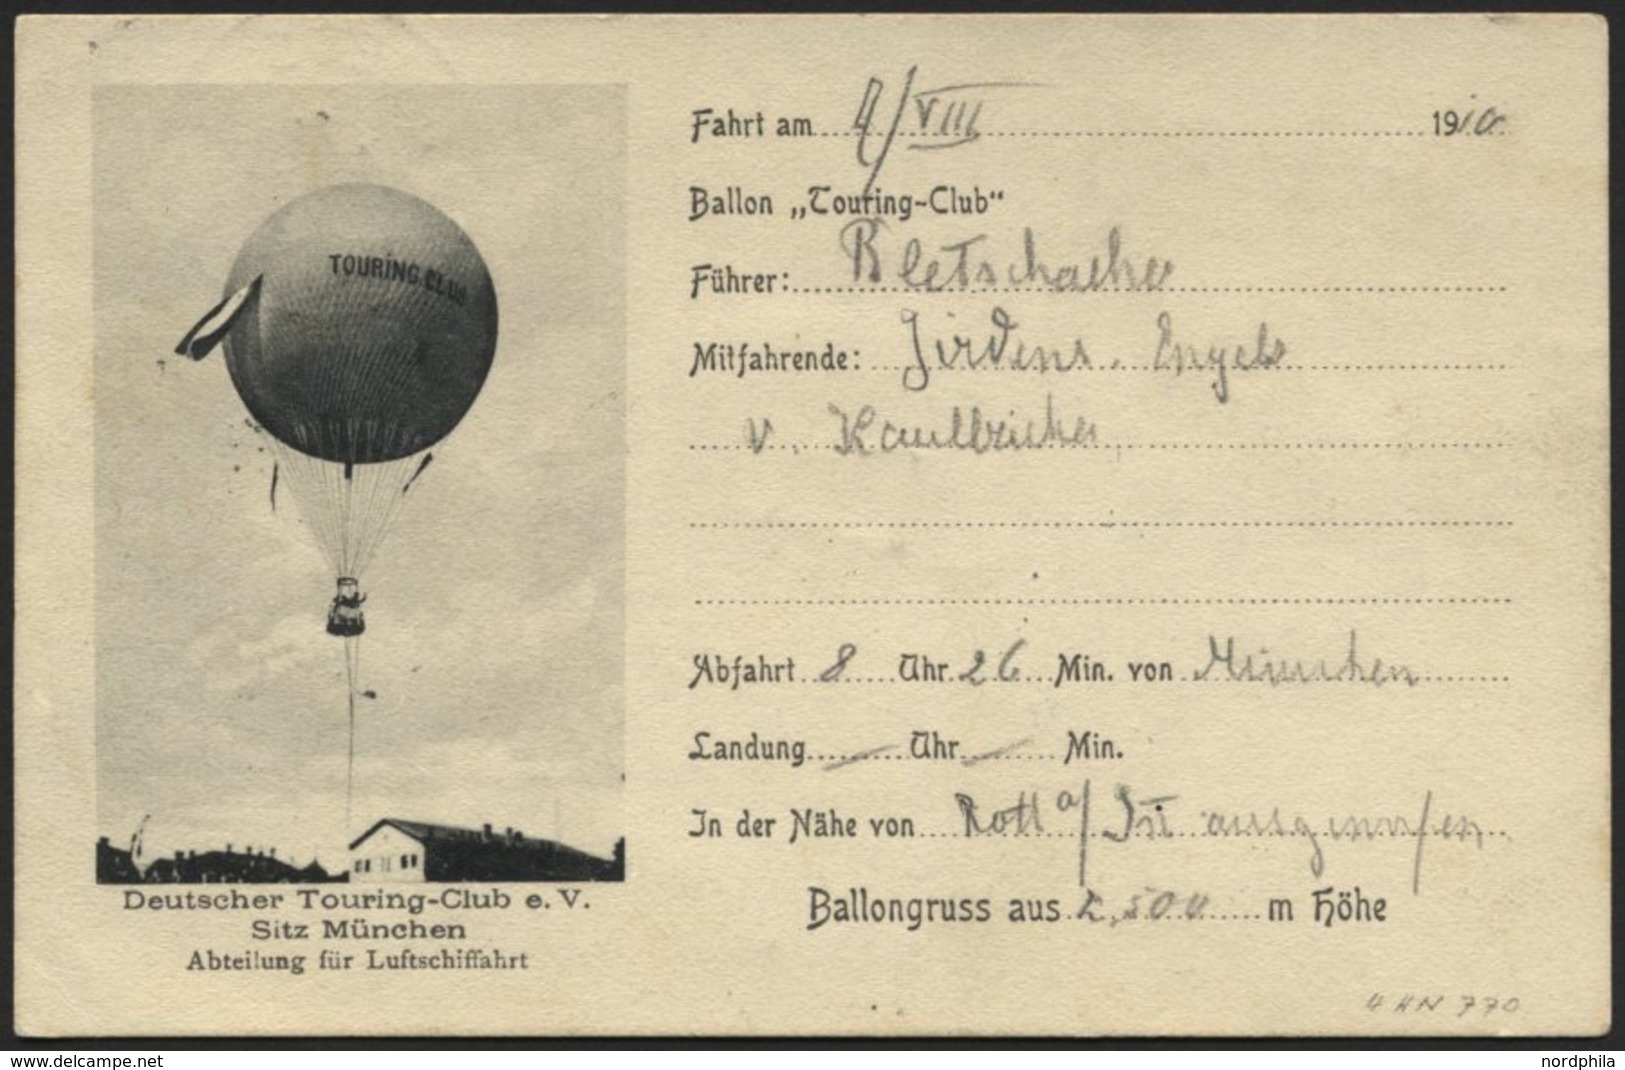 Fahrt am 4/VIII 1910
Ballon „Touring-Club“
Führer: Bletschacher
TOURING CLUB
Mitfahrende: Jirdens. Engels
v. Kaullbricher
Abfahrt 8 Uhr 26 Min. von München
Landung — Uhr — Min.
In der Nähe von Rott a/ Inn ausgeworfen
Ballongruss aus 2,500 m Höhe
Deutscher Touring-Club e. V.
Sitz München
Abteilung für Luftschiffahrt
770
www.delcampe.net
nordphila